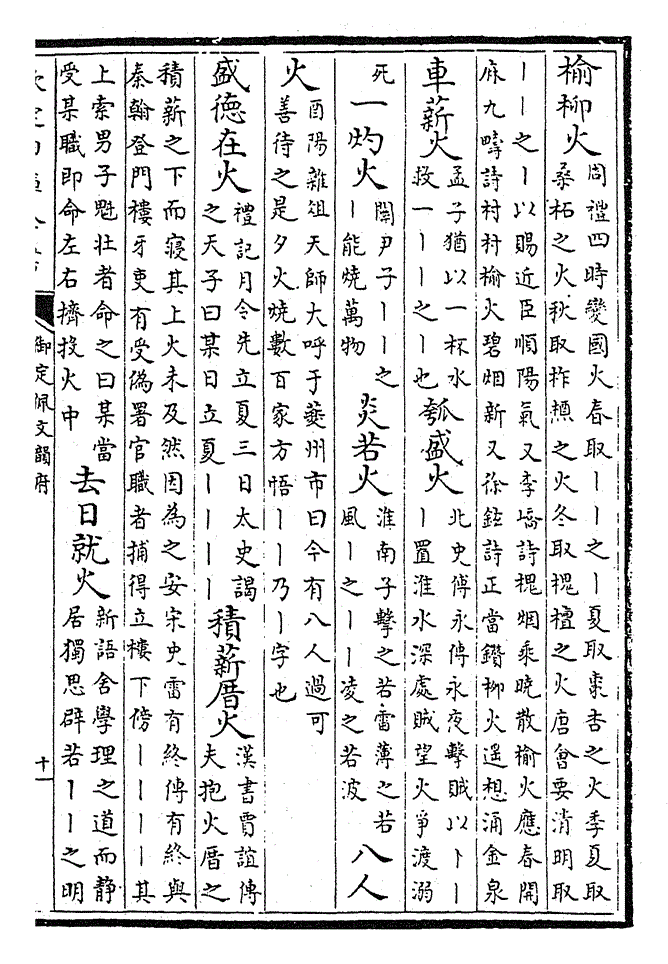 榆柳火
周禮四時變國火春取丨丨之丨夏取棗杏之火季夏取
桑柘之火秋取柞楢之火冬取槐檀之火唐會要清明取
丨丨之丨以賜近臣順陽氣又李嶠詩槐烟乘曉散榆火應春開
麻九疇詩村村榆火碧烟新又徐鉉詩正當鑽柳火遥想涌金泉
車薪火
孟子猶以一杯水
救一丨丨之丨也
瓠盛火
北史傅永傳永夜擊賊以卜丨丨
丨置淮水深處賊望火爭渡溺
死
一灼火
關尹子丨丨之
丨能燒萬物
炎若火
淮南子擊之若雷薄之若
風丨之丨丨凌之若波
八人
火
酉陽雜俎天師大呼于蘷州市曰今有八人過可
善待之是夕火燒數百家方悟丨丨乃丨字也
盛德在火
禮記月令先立夏三日太史謁
之天子曰某日立夏丨丨丨丨
積薪厝火
漢書賈誼傳
夫抱火厝之
積薪之下而寢其上火未及然因為之安宋史雷有終傳有終與
秦翰登門樓牙吏有受偽署官職者捕得立樓下傍丨丨丨丨其
上索男子魁壯者命之曰某當
受某職即命左右擠投火中
去日就火
新語舍學理之道而靜
居獨思辟若丨丨之明
御定佩文韻府
十一